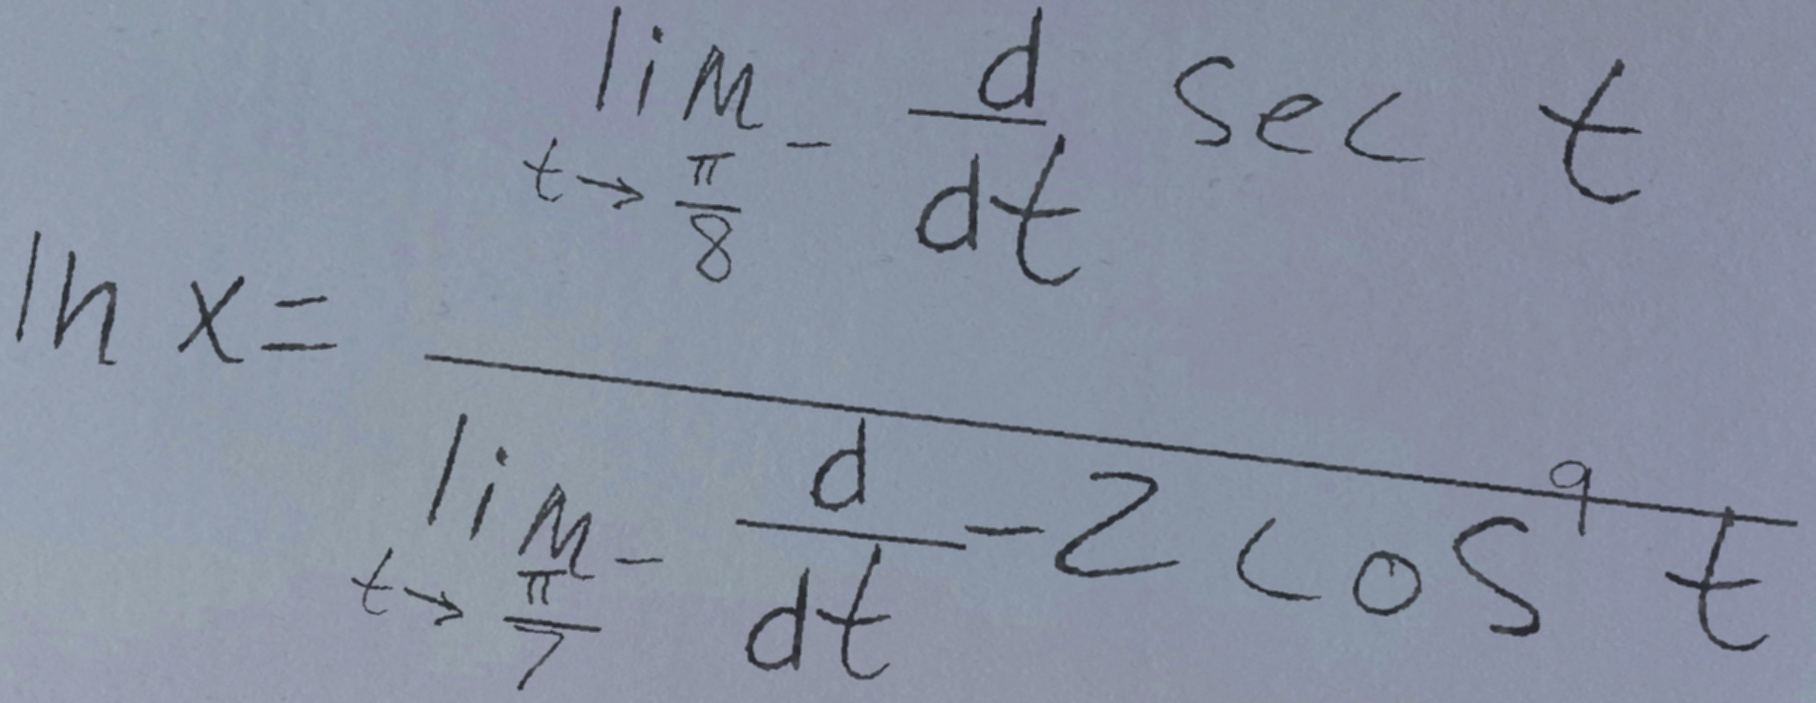 ln x = \frac{\lim_{t \to \frac{\pi}{8}^-} \frac{d}{dt} \sec t}{\lim_{t \to \frac{\pi}{7}^-} \frac{d}{dt} -2 \cos^9 t}